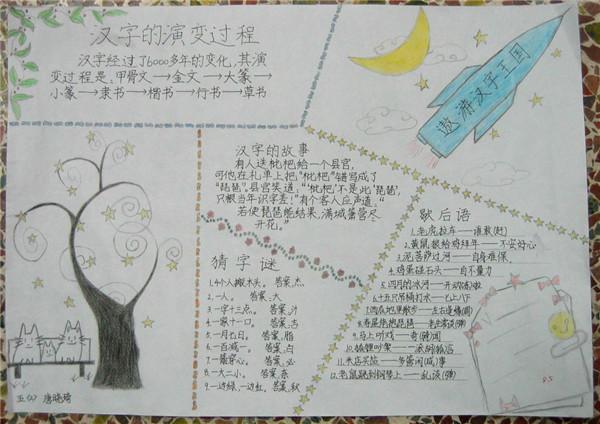 汉字的演变过程
汉字经过了6000多年的变化,其演
变过程是:甲骨文→金文→大篆→
小篆→隶书→楷书→行书→草书
遨游汉字王国
汉字的故事
有人送枇杷给一个县官,
可他在礼单上把"枇杷"错写成了
"琵琶",县官笑道:"'枇杷'不是此'琵琶',
只恨当年识字差!"有个客人应声道:"
若使琵琶能结果,满城箫管尽
开花。"
猜字谜
1.4个人搬木头。 答案,杰
2.一人。 答案:大
3.一字十三点。 答案,汁
4.一家十一口。 答案,吉
5.一月七日。 答案,脂
6.一百减一。 答案,白
8.一大二小。 答案,奈
9.一边绿,一边红, 答案,秋
歇后语
1.老虎拉车——谁敢(赶)
2.黄鼠狼给鸡拜年——不安好心
3.泥菩萨过河——自身难保
4.鸡蛋碰石头——自不量力
5.四月的冰河——开动(冻)啦
6.十五只吊桶打水——七上八下
9.马上听戏——奇(骑)闻
12.老鼠跳到钢琴上——乱谈(弹)
五(2) 唐晓琦